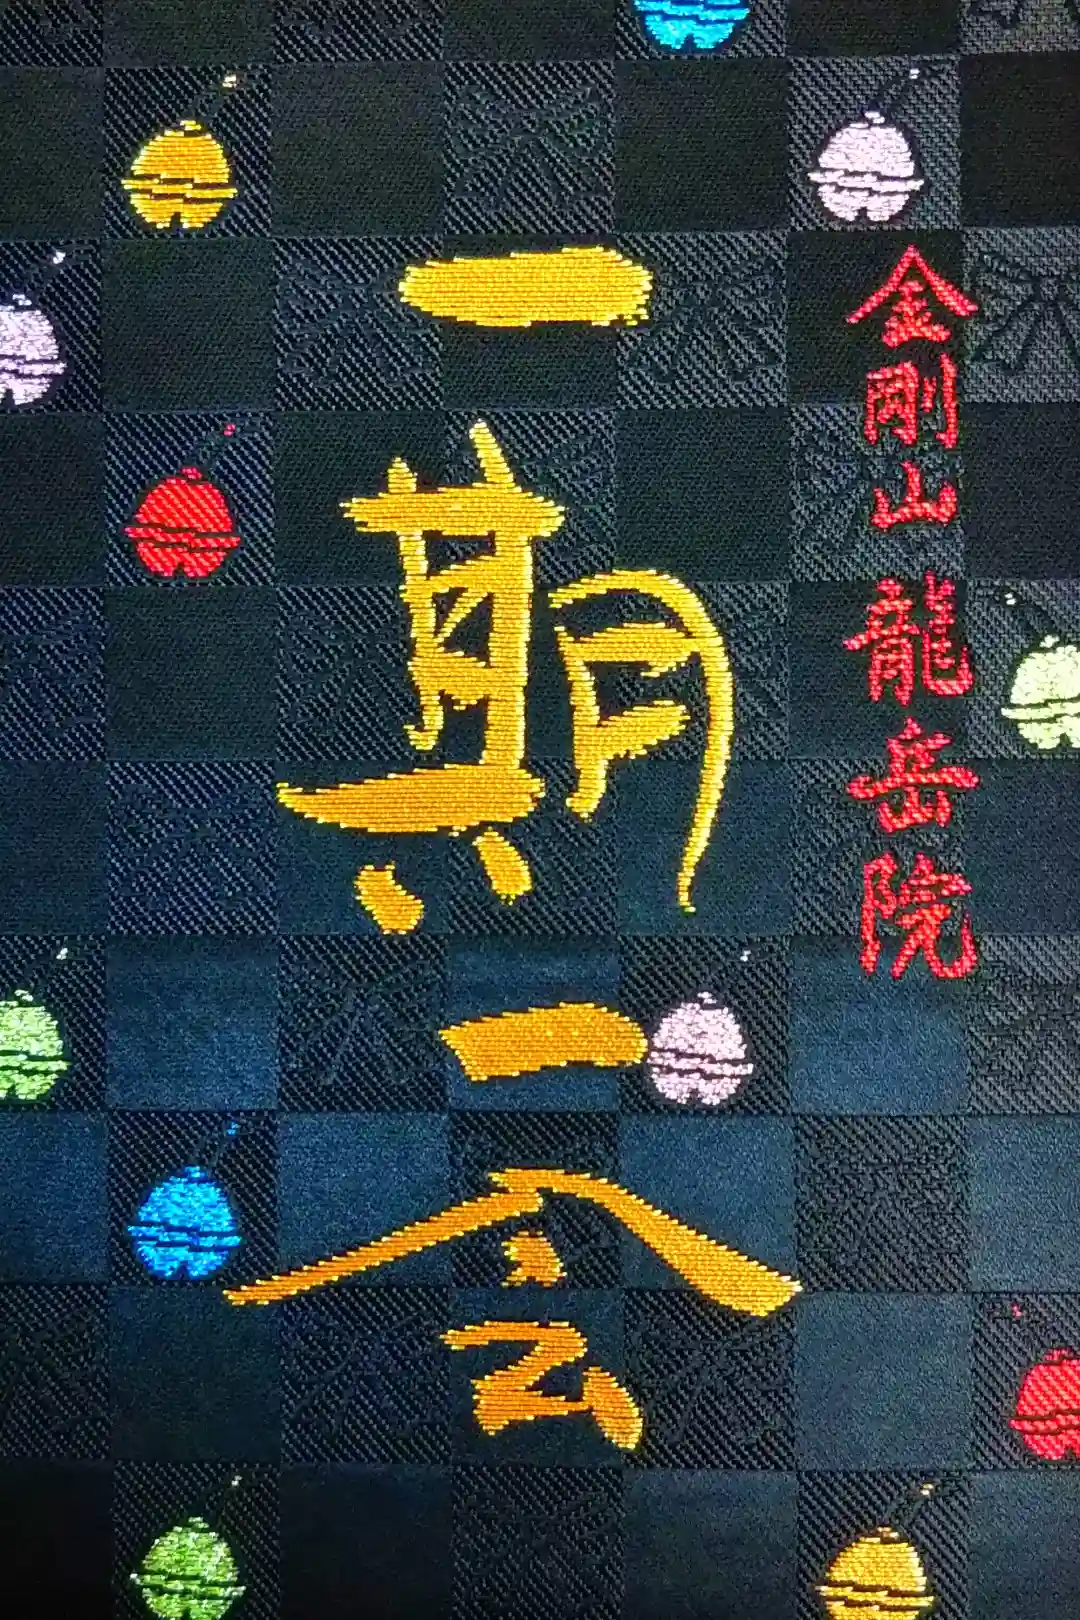 金剛山 龍岳院
一期一会